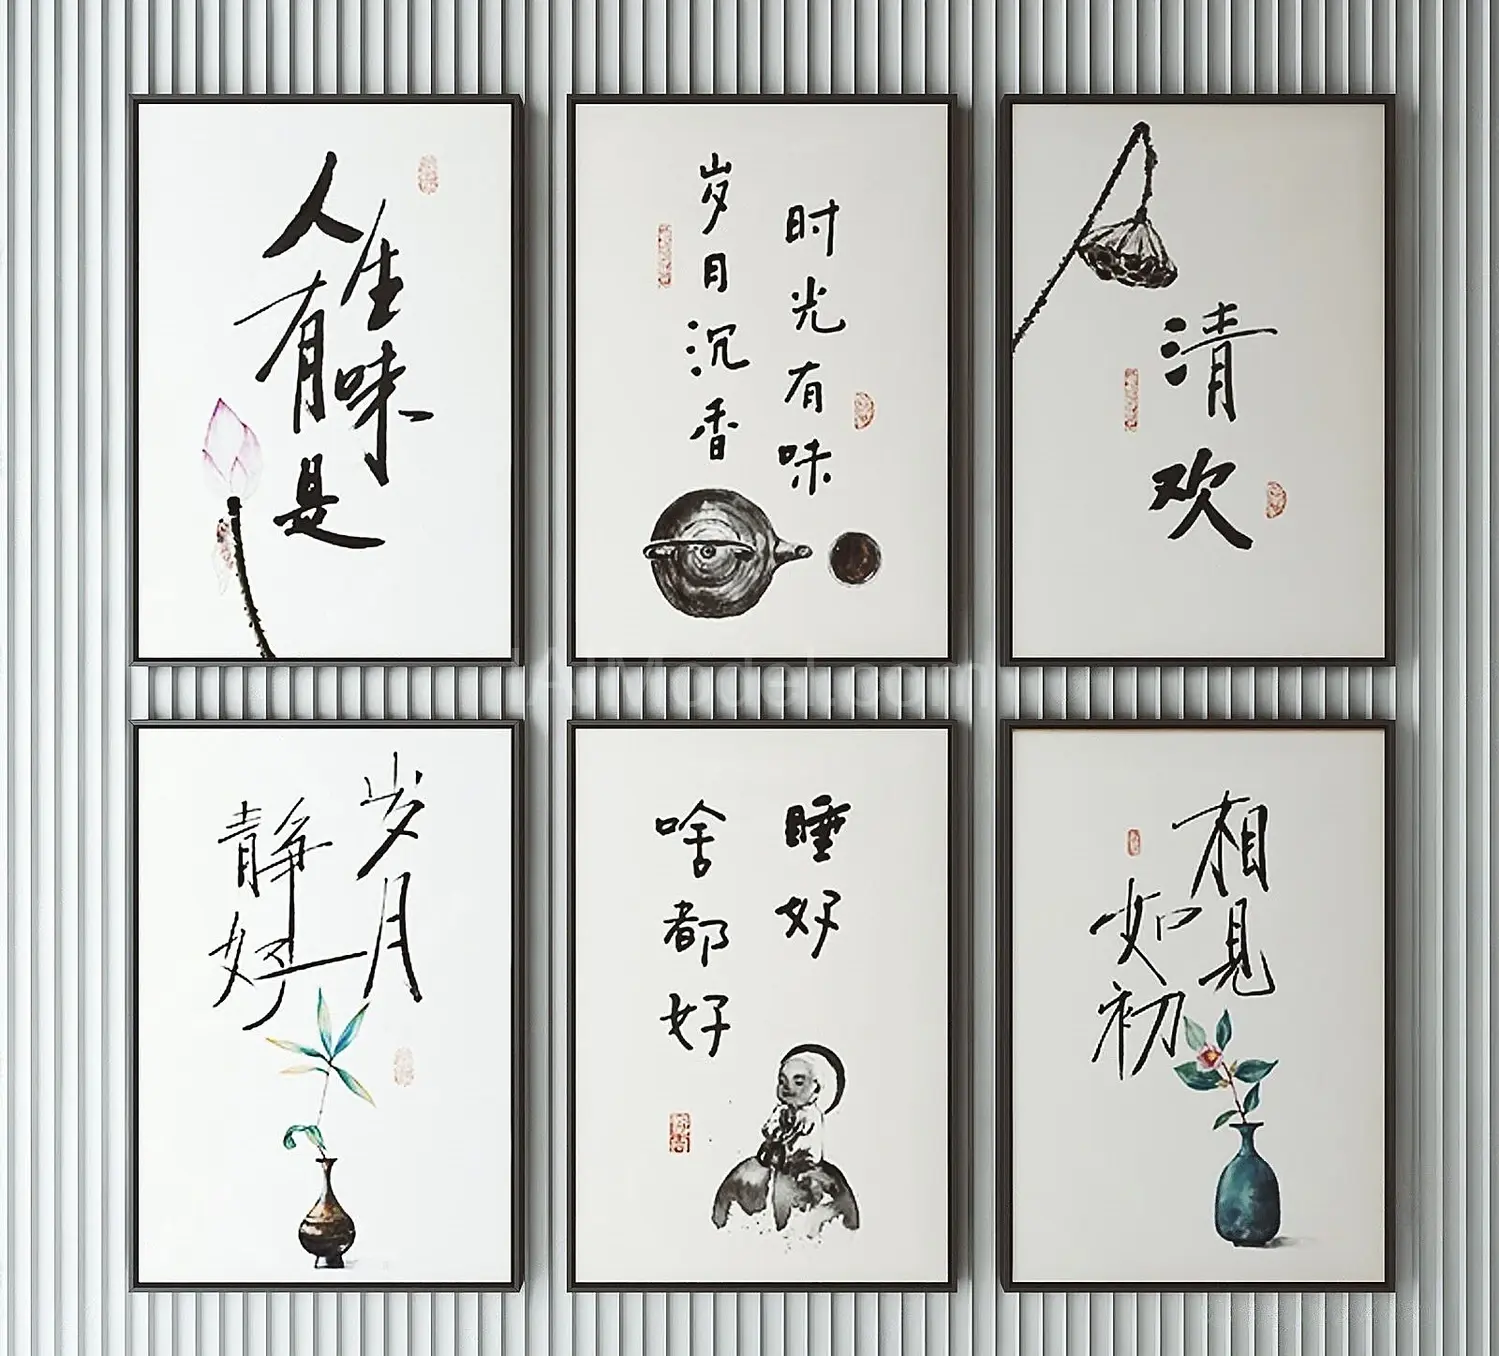 人生
有味
是
时光有味
岁月沉香
清欢
岁月
静好
睡好
啥都好
相见
如初
AIModel.com